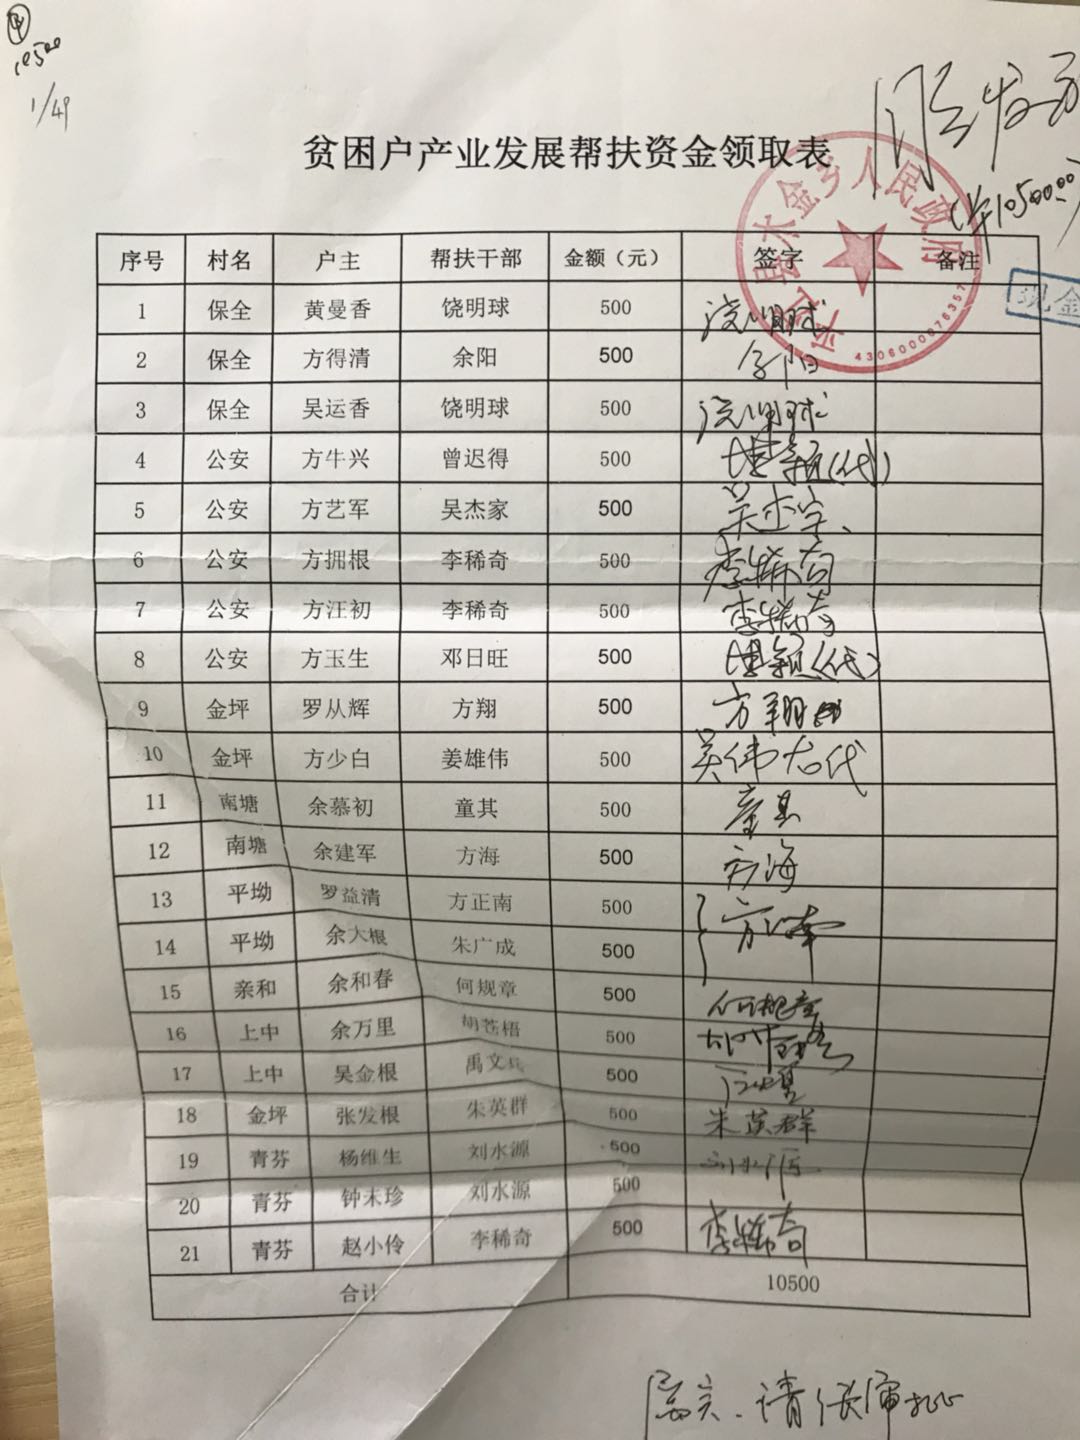 ④
10500
1/49
(¥10500.00)
贫困户产业发展帮扶资金领取表
县木金乡人民政府
4306000076357
现金
序号 村名 户主 帮扶干部 金额（元） 签字 备注
1 保全 黄曼香 饶明球 500 饶明球
2 保全 方得清 余阳 500 余阳
3 保全 吴运香 饶明球 500 饶明球
4 公安 方牛兴 曾迟得 500 (代)
5 公安 方艺军 吴杰家 500
6 公安 方拥根 李稀奇 500 李稀奇
7 公安 方汪初 李稀奇 500 李稀奇
8 公安 方玉生 邓日旺 500 (代)
9 金坪 罗从辉 方翔 500 方翔
10 金坪 方少白 姜雄伟 500 代
11 南塘 余慕初 童其 500 童其
12 南塘 余建军 方海 500 方海
13 平坳 罗益清 方正南 500 方正南
14 平坳 余大根 朱广成 500
15 亲和 余和春 何规章 500 何规章
16 上中 余万里 胡苍梧 500 胡苍梧
17 上中 吴金根 禹文 500
18 金坪 张发根 朱英群 500 朱英群
19 青芬 杨维生 刘水源 500 刘水源
20 青芬 钟未珍 刘水源 500
21 青芬 赵小伶 李稀奇 500 李稀奇
合计 10500
属实、请 审批